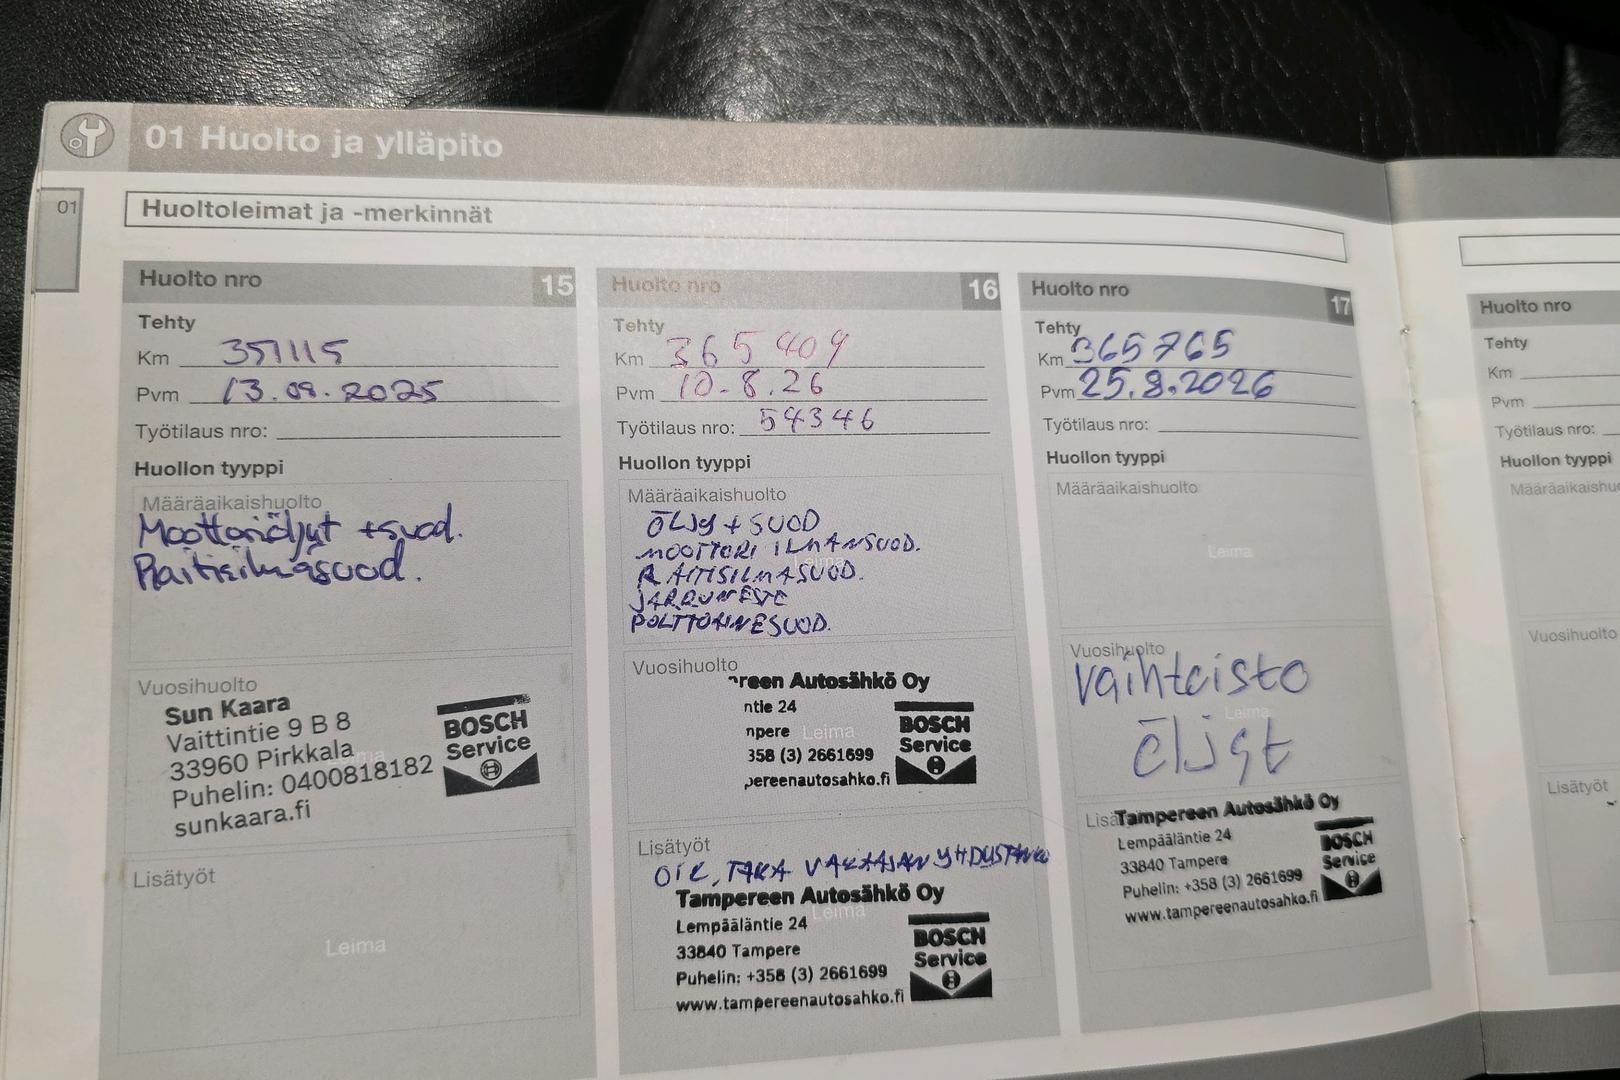 01 Huolto ja ylläpito
01
Huoltoleimat ja -merkinnät
Huolto nro 15
Tehty
Km 351115
Pvm 13.08.2025
Työtilaus nro:
Huollon tyyppi
Määräaikaishuolto
Moottoriöljyt + suod.
Raitisilmasuod.
Vuosihuolto
Sun Kaara
Vaittintie 9 B 8
33960 Pirkkala
Puhelin: 0400818182
sunkaara.fi
BOSCH
Service
Lisätyöt
Leima
Huolto nro 16
Tehty
Km 365409
Pvm 10.8.26
Työtilaus nro: 54346
Huollon tyyppi
Määräaikaishuolto
ÖLJY + SUOD
MOOTTORI ILMANSUOD.
RAITISILMASUOD.
JARRUNESTE
POLTTOAINESUOD.
Vuosihuolto
reen Autosähkö Oy
ntie 24
npere
Leima
358 (3) 2661699
pereenautosahko.fi
BOSCH
Service
Lisätyöt
OIK, TAKA VAKAAJAN YHDYSTANKO
Tampereen Autosähkö Oy
Lempääläntie 24
Leima
33840 Tampere
Puhelin: +358 (3) 2661699
www.tampereenautosahko.fi
BOSCH
Service
Huolto nro 17
Tehty
Km 365765
Pvm 25.8.2026
Työtilaus nro:
Huollon tyyppi
Määräaikaishuolto
Leima
Vuosihuolto
vaihteisto
Leima
öljyt
Lisä
Tampereen Autosähkö Oy
Lempääläntie 24
33840 Tampere
Puhelin: +358 (3) 2661699
www.tampereenautosahko.fi
BOSCH
Service
Huolto nro
Tehty
Km
Pvm
Työtilaus nro:
Huollon tyyppi
Määräaikaishu
Vuosihuolto
Lisätyöt